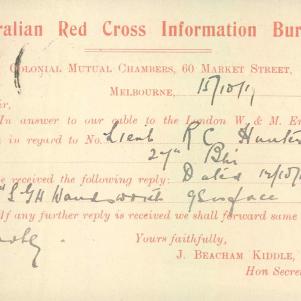 ralian Red Cross Information Bur
Colonial Mutual Chambers, 60 Market Street,
Melbourne, 15/10/17
ir,
In answer to our cable to the London W. & M. En
in regard to No. Lieut R C Hunter
27th Btn
e received the following reply: Dated 12/10/
SGH Handsworth
If any further reply is received we shall forward same
Yours faithfully,
J. BEACHAM KIDDLE,
Hon Secre